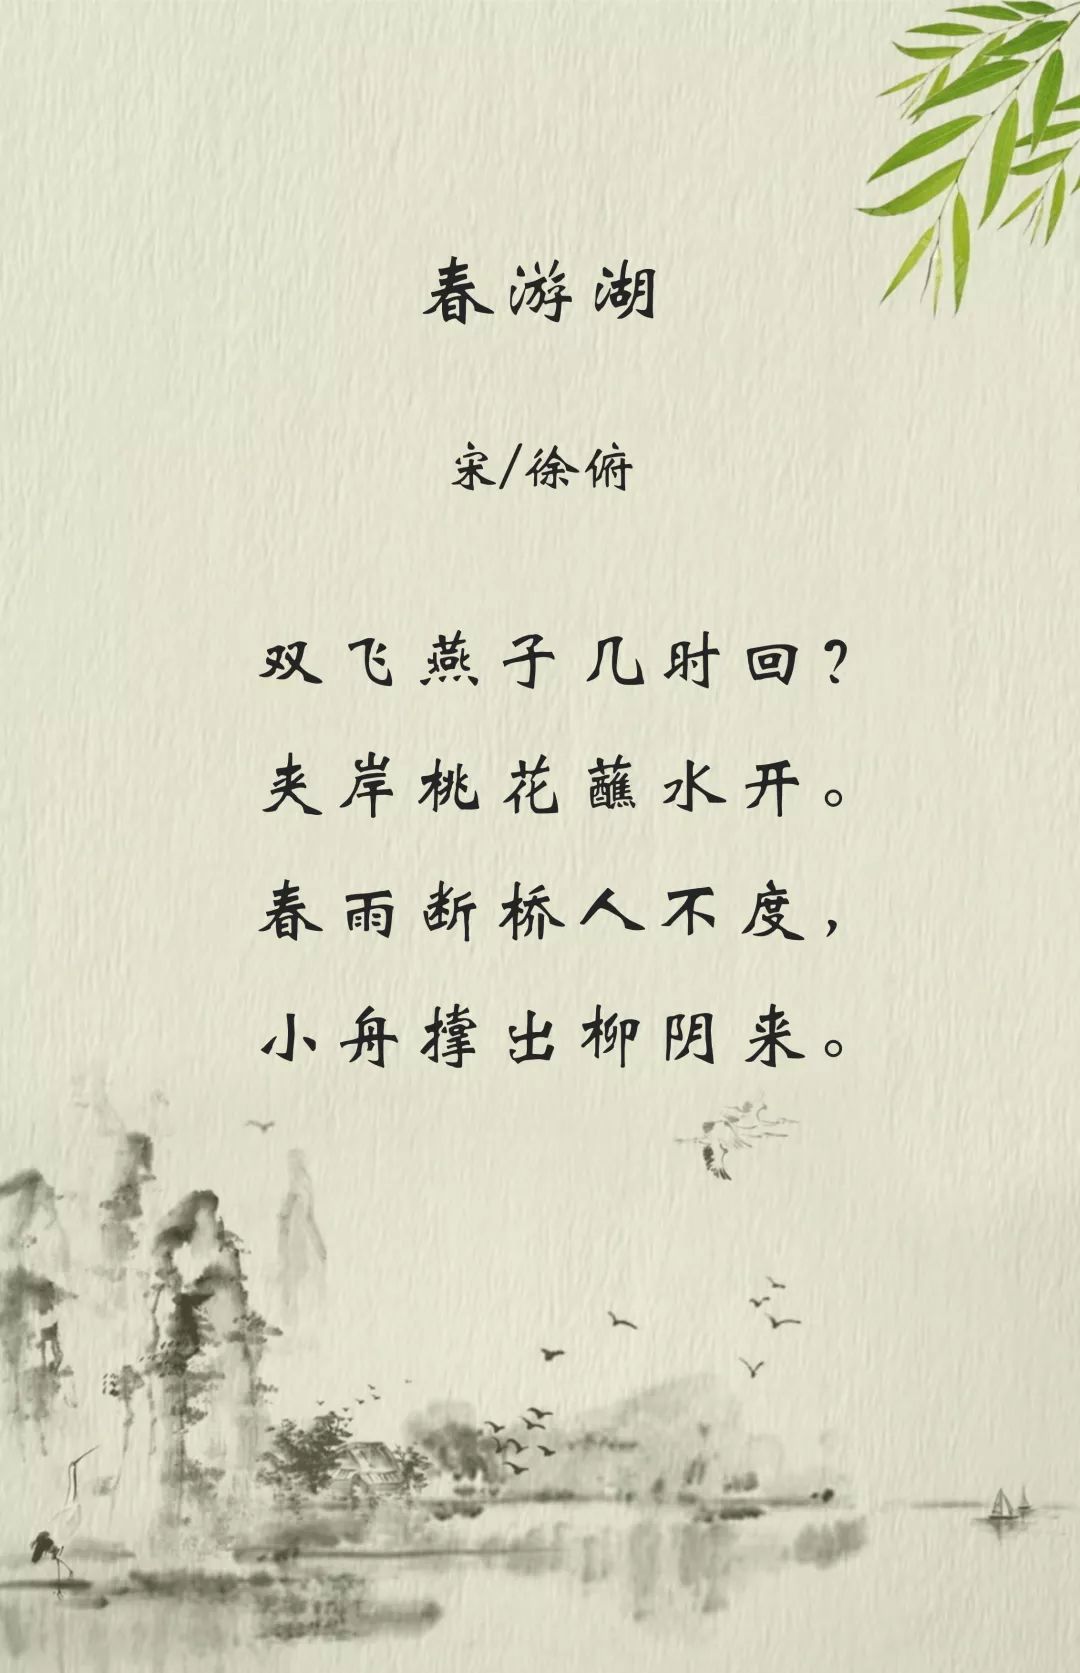 春游湖
宋/徐俯
双飞燕子几时回?
夹岸桃花蘸水开。
春雨断桥人不度,
小舟撑出柳阴来。